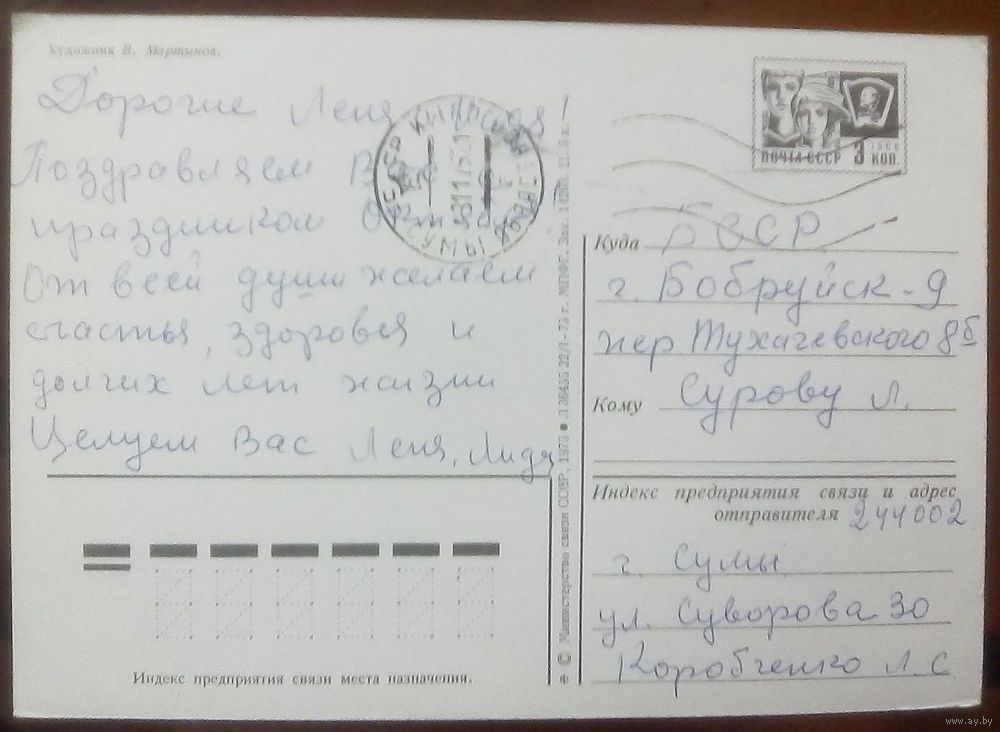 Художник В. Мартынов.
Дорогие Леня
Поздравляем В
праздником
От всей души желаем
счастья, здоровья и
долгих лет жизни
Целуем Вас Леня, Лида
ПОЧТА СССР 3 КОП.
1966
Куда БССР
г. Бобруйск-9
пер Тухачевского 8б
Кому Сурову Л.
Индекс предприятия связи и адрес
отправителя 244002
г. Сумы
ул. Суворова 30
Коробченко Л.С
Индекс предприятия связи места назначения.
© Министерство связи СССР, 1975 ● Л 36455 22/I-75 г. МПФГ. Зак.
www.ay.by